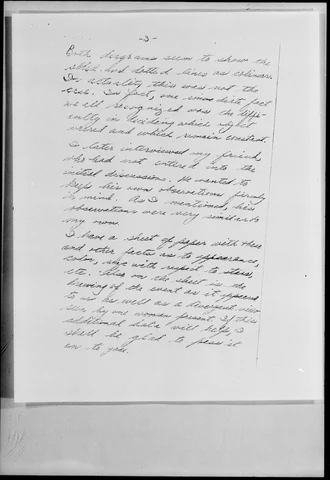 -3-
Both diagrams seem to show the
solid and dotted lines as colinear.
In actuality this was not the
case. In fact, one immediate fact
we all recognized was the diffi-
culty in deciding which light
veered and which remain constant.
I later interviewed my friend
who had not entered into the
initial discussions. He wanted to
keep his own observations firmly
in mind. As I mentioned, his
observations were very similar to
my own.
I have a sheet of paper with these
and other facts as to appearance,
color, size with respect to stars,
etc. Also on the sheet is the
drawing of the event as it appeared
to us as well as a divergent view
seen by one woman present. If this
additional data will help, I
shall be glad to pass it
on to you.